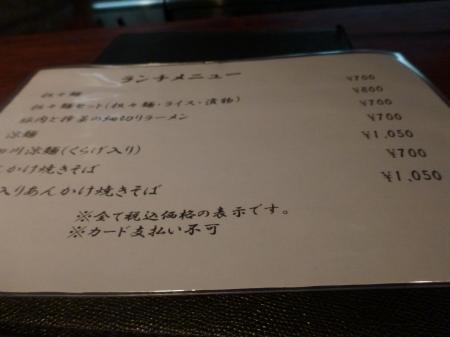 ランチメニュー
担々麺 ¥700
担々麺セット(担々麺・ライス・漬物) ¥800
豚肉と搾菜の細切りラーメン ¥700
涼麺 ¥700
川涼麺(くらげ入り) ¥1,050
かけ焼きそば ¥700
入りあんかけ焼きそば ¥1,050
※全て税込価格の表示です。
※カード支払い不可